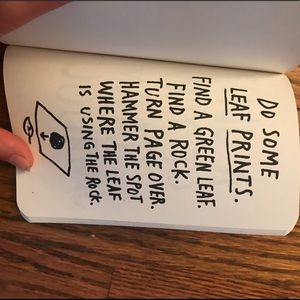 DO SOME
LEAF PRINTS.
FIND A GREEN LEAF.
FIND A ROCK.
TURN PAGE OVER.
HAMMER THE SPOT
WHERE THE LEAF
IS USING THE ROCK.